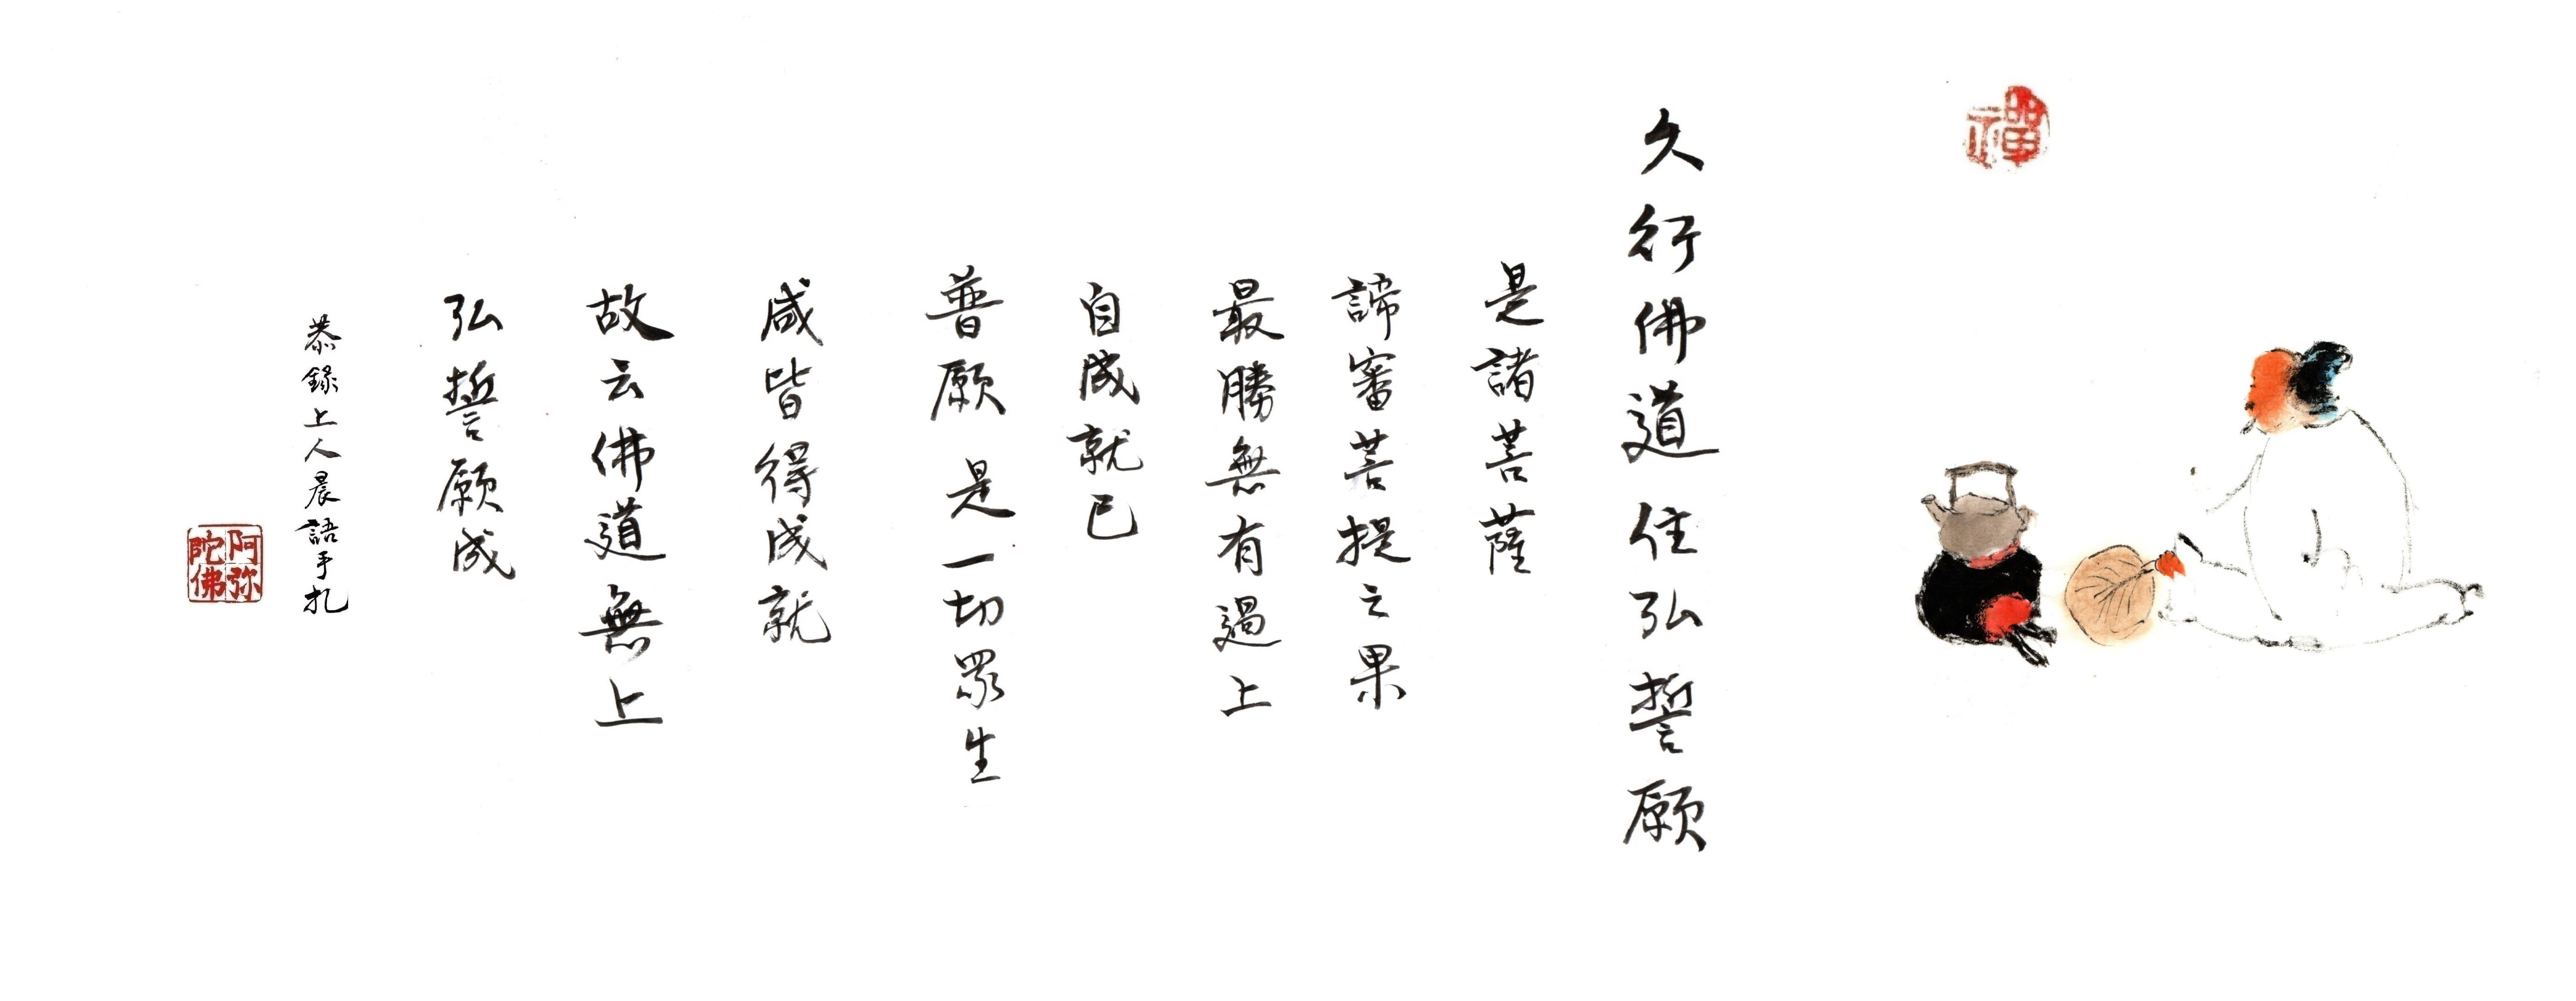 禪
久行佛道住弘誓願
是諸菩薩
諦審菩提之果
最勝無有過上
自成就已
普願是一切眾生
咸皆得成就
故云佛道無上
弘誓願成
恭錄上人晨語手札
阿弥陀佛